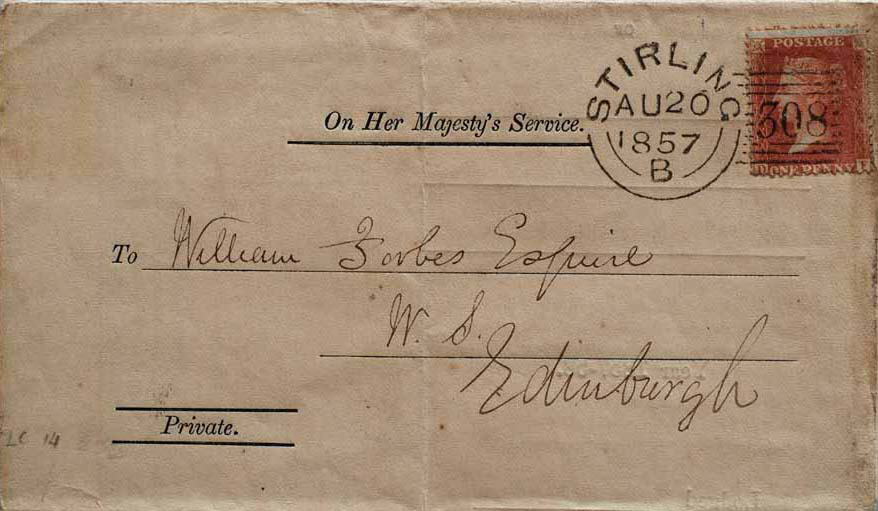 POSTAGE
308
ONE PENNY
STIRLING
AU 20
1857
B
On Her Majesty's Service.
To William Forbes Esquire
W. S.
Edinburgh
Private.
LC 14